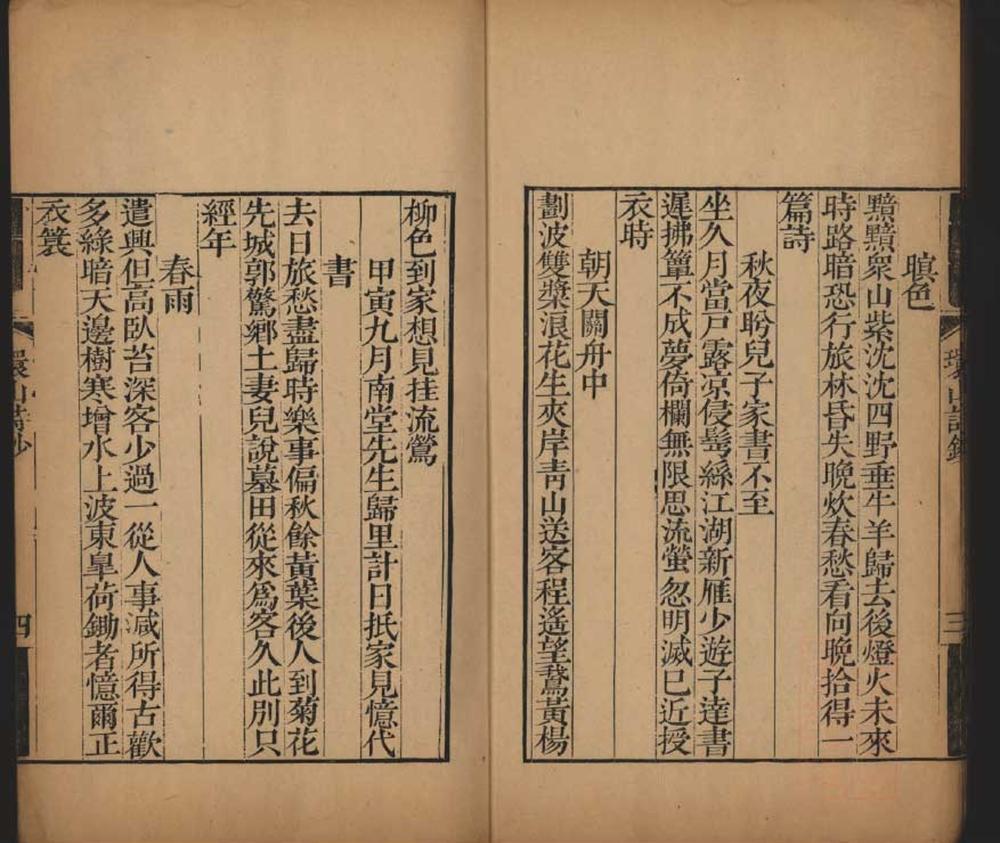 暝色
黯黯衆山紫沈沈四野垂牛羊歸去後燈火未來
時路暗恐行旅林昏失晚炊春愁看向晚拾得一
篇詩
秋夜盼兒子家書不至
坐久月當戸露凉侵鬢絲江湖新雁少遊子達書
遲拂簟不成夢倚欄無限思流螢忽明滅已近授
衣時
朝天關舟中
劃波雙槳浪花生夾岸靑山送客程遙望鵞黃楊
環山詩鈔
三
柳色到家想見挂流鶯
甲寅九月南堂先生歸里計日抵家見憶代
書
去日旅愁盡歸時樂事偏秋餘黃葉後人到菊花
先城郭驚鄉土妻兒說墓田從來爲客久此別只
經年
春雨
遣興但高臥苔深客少過一從人事減所得古歡
多綠暗天邊樹寒增水上波東皐荷鋤者憶爾正
衣簑
環山詩鈔
四